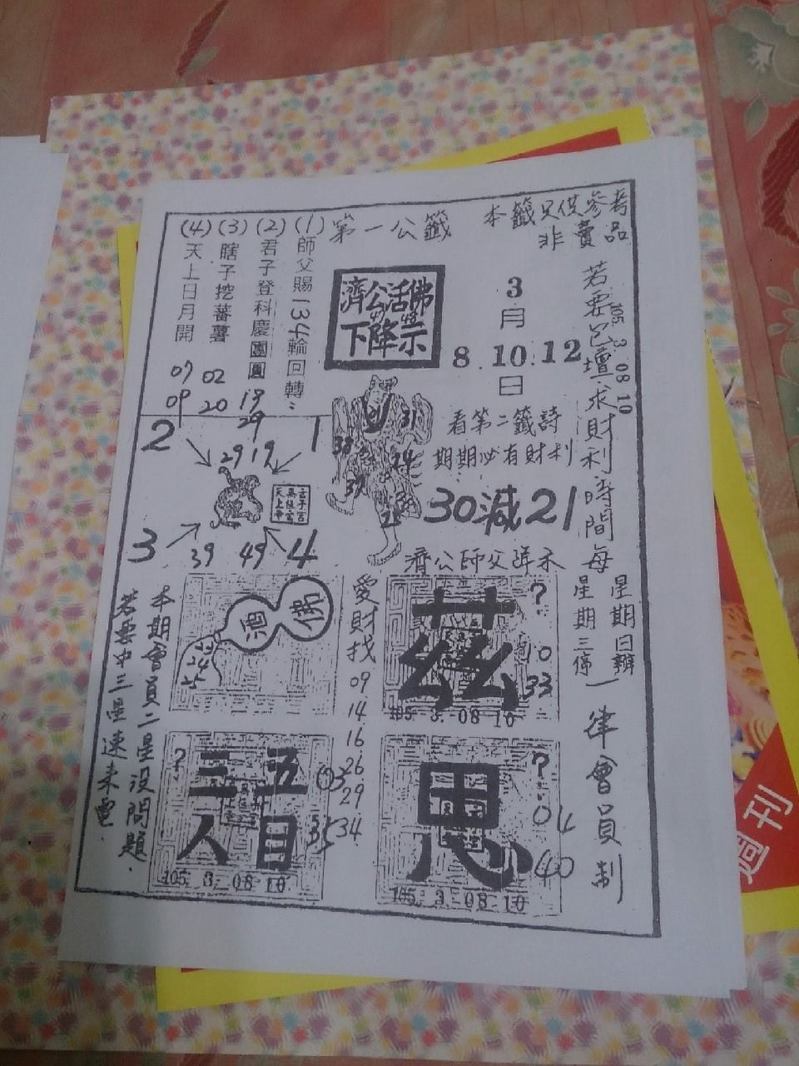 本籤只供參考
非賣品
第一公籤
(1)師父賜134輪回轉
(2)君子登科慶團圓
(3)瞎子挖蕃薯
(4)天上日月開
19
29
02
20
07
09
濟公活佛
下降示
3
月
8.10.12
日
105 3 08 10
若要包壇求財利時間每
星期日辦
星期三停
一律會員制
看第二籤詩
期期必有財利
30減21
濟公師父降示
31
38
24
37
2
1
29 19
3
39 49
4
愛財找
09
14
16
26
29
34
佛
酒
22
24
25
茲
?
0
33
105 3 08 10
五目
三人
?
03
35
105 3 08 10
思
?
04
40
105 3 08 10
本期會員二星沒問題
若要中三星速來電
週刊